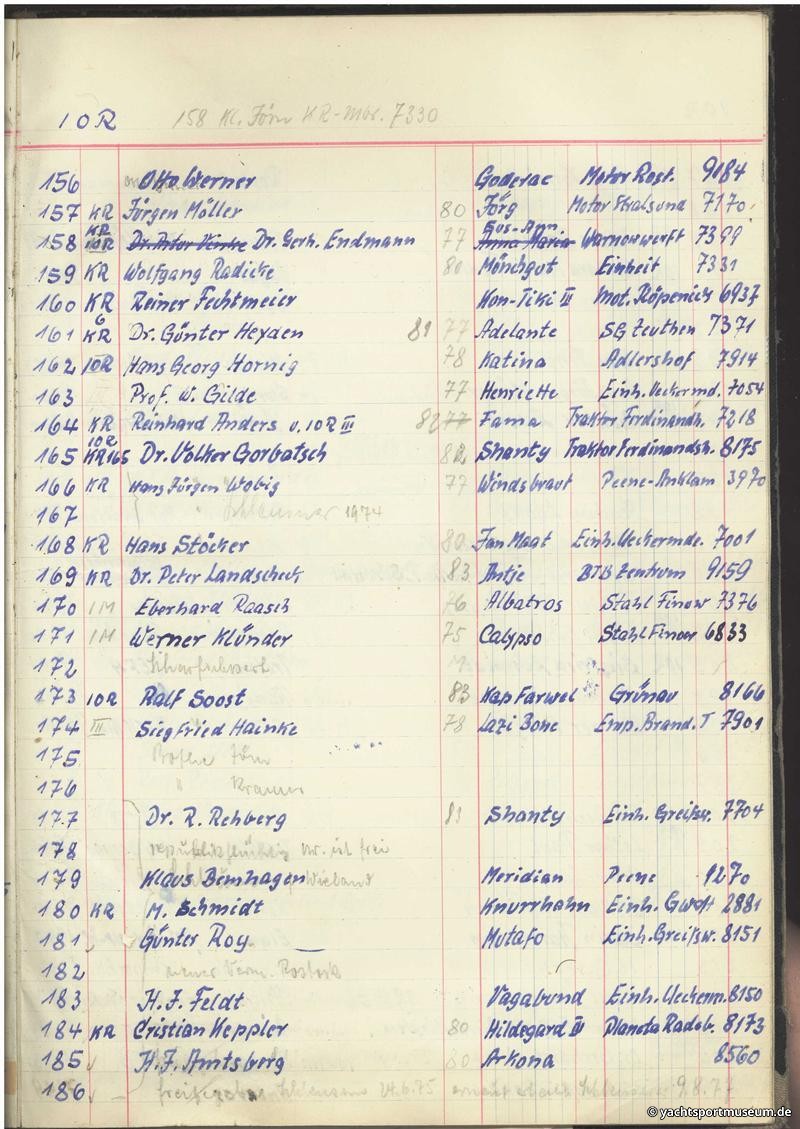 10R 158 Kl. Jörn KR-Mbr. 7330
156 Otto Werner Goderac Motor Rost. 9184
157 KR Jürgen Möller 80 Jörg Motor Stralsund 7170
158 KR 10R Dr. Gerh. Endmann 77 Anna Maria Warnowwerft 7399
159 KR Wolfgang Radicke 80 Mönchgut Einheit 7331
160 KR Reiner Fechtmeier Kon-Tiki III Mot. Köpenick 6937
161 KR 6 Dr. Günter Heyden 81 77 Adelante SG Zeuthen 7371
162 10R Hans Georg Hornig 78 Katina Adlershof 7914
163 III Prof. W. Gilde 77 Henriette Einh. Ueckermd. 7054
164 KR Reinhard Anders v. 10R III 82 77 Fama Traktor Ferdinandsh. 7218
165 10R KR165 Dr. Volker Gorbatsch 82 Shanty Traktor Ferdinandsh. 8175
166 KR Hans Jürgen Wobig 77 Windsbraut Peene-Anklam 3970
167 1974
168 KR Hans Stöcker 80 Jan Maat Einh. Ueckermde. 7001
169 KR Dr. Peter Landscheck 83 Antje BTB Zentrum 9159
170 1M Eberhard Raasch 76 Albatros Stahl Finow 7376
171 1M Werner Klünder 75 Calypso Stahl Finow 6833
172
173 10R Ralf Soost 83 Kap Farwel Grünau 8166
174 III Siegfried Hainke 78 Lazi Bone Emp. Brand. T 7901
175
176 " Kramer
177 Dr. R. Rehberg 81 Shanty Einh. Greifsw. 7704
178 republikflüchtig Nr. ist frei
179 Klaus Benhagen Wieland Meridian Peene 1270
180 KR M. Schmidt Knurrhahn Einh. Gwft 2881
181 Günter Roy Mutafo Einh. Greifsw. 8151
182 neuer Verm. Rostock
183 H.J. Feldt Vagabund Einh. Ueckerm. 8150
184 KR Cristian Keppler 80 Hildegard III Planeta Radeb. 8173
185 H.J. Amtsberg 80 Arkona 8560
186 24.6.75 9.8.77
© yachtsportmuseum.de